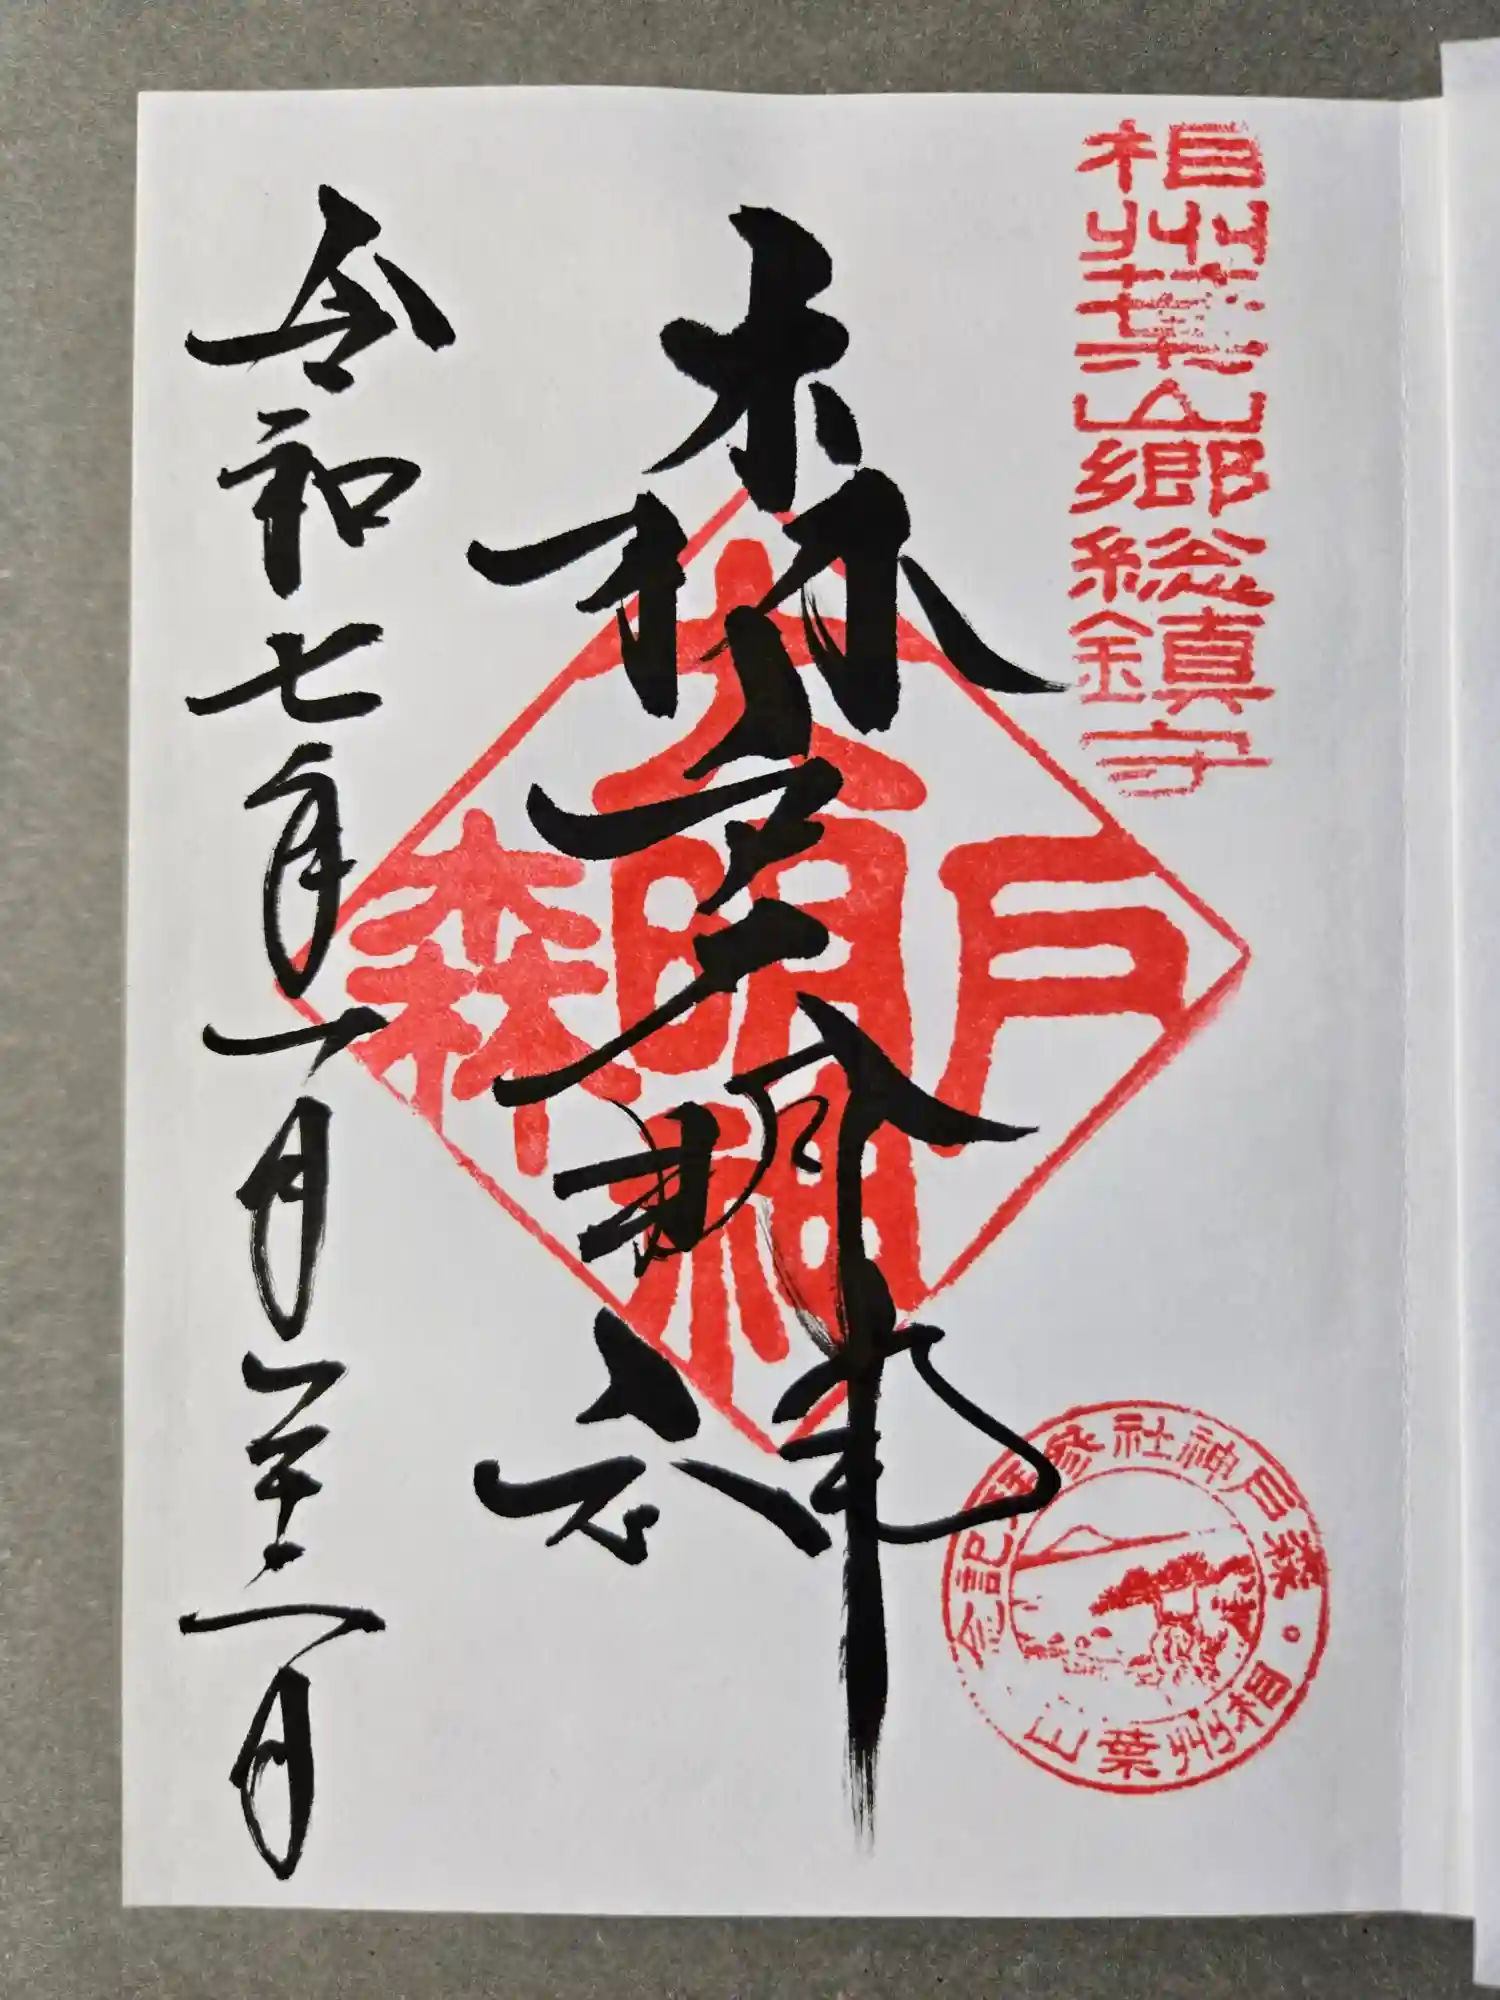 相州葉山郷総鎮守
森戸大明神
令和七年一月二十二日
大明神
森戸
森戸神社參拝記念
相州葉山